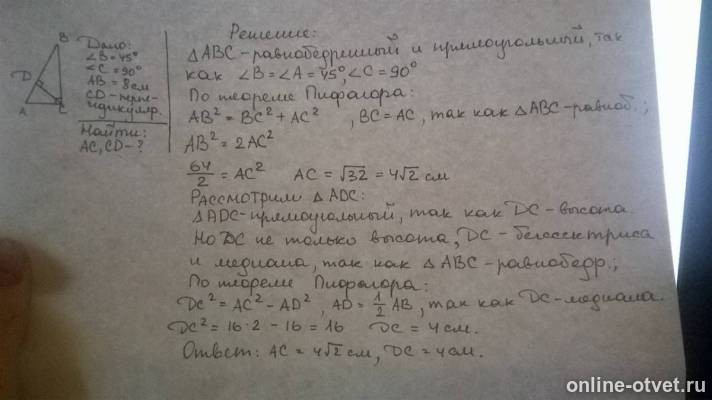 B
D
A
C
Дано:
∠B=45°
∠C=90°
AB=8см
CD-перпе-
ндикуляр.
Найти:
AC, CD-?
Решение:
△ABC-равнобедренный и прямоугольный, так
как ∠B=∠A=45°, ∠C=90°
По теореме Пифагора:
AB²=BC²+AC² , BC=AC, так как △ABC-равноб.;
AB²=2AC²
64/2=AC² AC=√32=4√2 см
Рассмотрим △ADC:
△ADC-прямоугольный, так как DC-высота.
Но DC не только высота, DC-биссектриса
и медиана, так как △ABC-равнобедр.;
По теореме Пифагора:
DC²=AC²-AD², AD=1/2 AB, так как DC-медиана.
DC²=16·2-16=16 DC=4см.
Ответ: AC=4√2 см, DC=4см.
online-otvet.ru